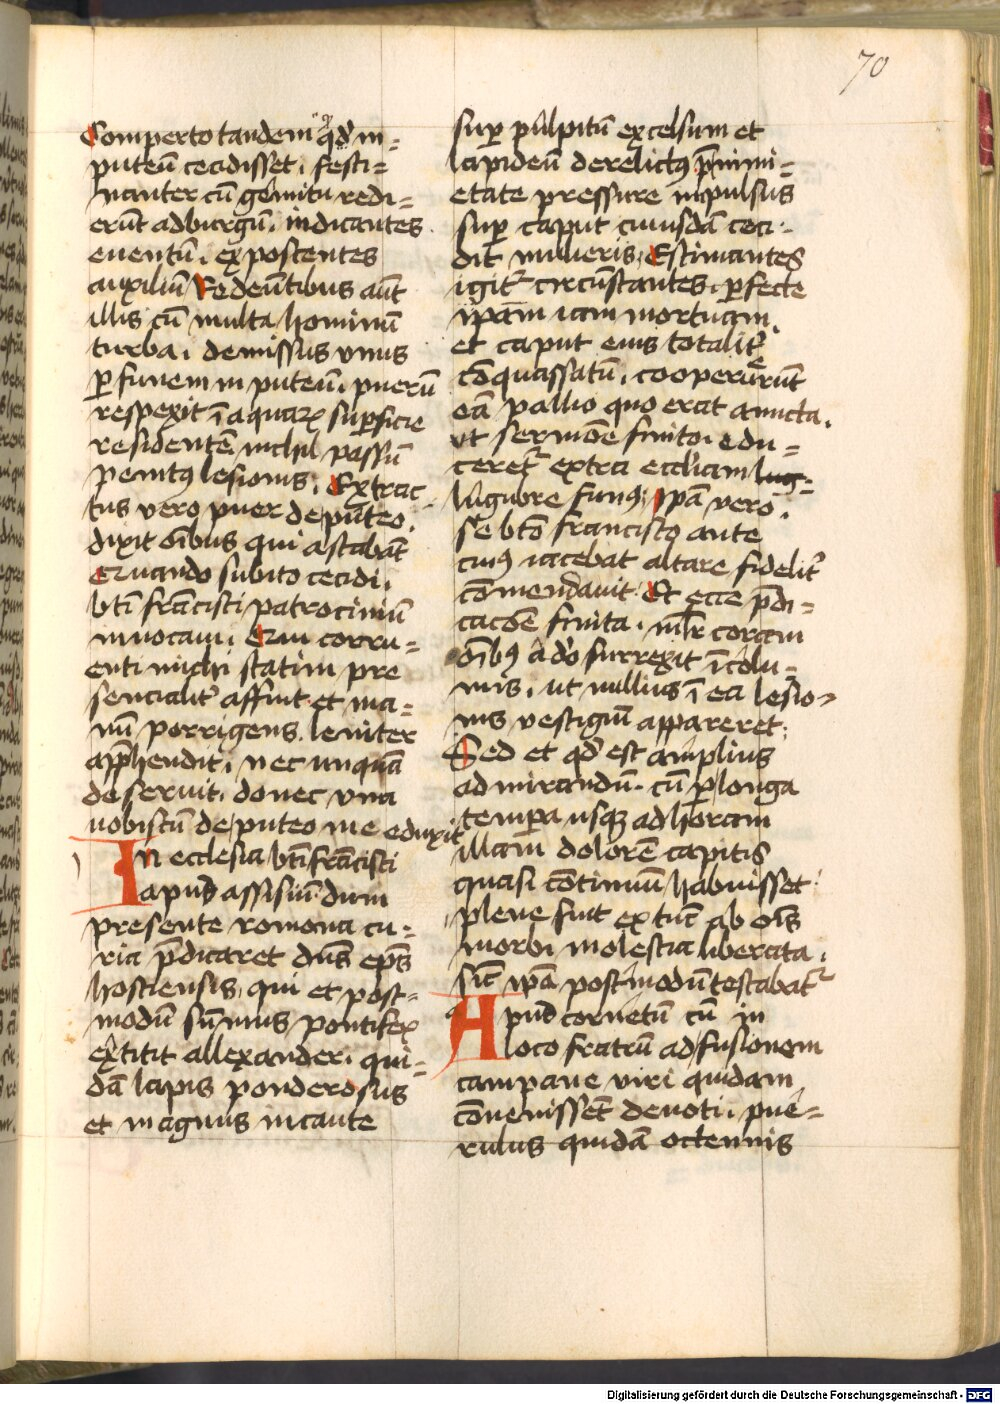 70
Comperto tandem qd' in=
puteū cecidisset, festi=
nanter cū gemitu redi=
erūt ad burgū, indicantes
euentū, expostentes
auxiliū Redeūtibus aūt
illis cū multa hominū
turba, demissus vnus
p funem in puteum, puerū
respexit ī aquarꝝ suꝑficie
residentē, nichil passū
penitꝰ lesionis, Extrac
tus vero puer de puteo,
dixit oībus qui astabāt
Cruando subito cecidi,
bti frācisci patrociniū
inuocaui, Qui corru=
enti michi statim pre
sencialit' affuit et ma=
nū porrigens leniter
apphendit, nec unquā
deseruit, donec vna
uobiscū de puteo me eduxit
In ecclesia bti frācisci
apud assisiū dum
presente romana cu=
ria pdicaret dns eps
hostiensis, qui et post=
modū sūmus pontifex
extitit allexander, qui=
dā lapis ponderosus
et magnus incaute
suꝑ pulpitū excelsum et
lapideū derelictꝰ pnimi=
etate pressure inpulsus
suꝑ caput cuiusdā ceci=
dit mulieris, Estimantes
igit' circūstantes, ꝑfecte
ipam iam mortuam,
et caput eius totalit'
cōquassatū, cooperuerūt
eā pallio quo erat amicta,
vt sermōe finito edu=
ceret' extra eccliam
lugubre funꝰ, Ipā vero,
se bto francisco ante
cuiꝰ iacebat altare fidelit'
cōmendauit Et ecce pdi=
cacōe finita, mlr coram
oībꝰ ado surrexit īcolu=
mis, ut nullius ī ea lesio=
nis vestigiū appareret;
Sed et qd' est amplius
admirandū, cū ꝑ longa
tempa usqꝫ ad horam
illam dolorē capitis
quasi cōtinuū habuisset
plene fuit ex tūc ab oīs
morbi molestia liberata,
sic ipā postmodū testabat'
Apud cornetū cū in
loco fratrū ad fusionem
campane viri quidam
cōuenissēt deuoti, pue=
rulus quidā octennis
Digitalisierung gefördert durch die Deutsche Forschungsgemeinschaft - DFG